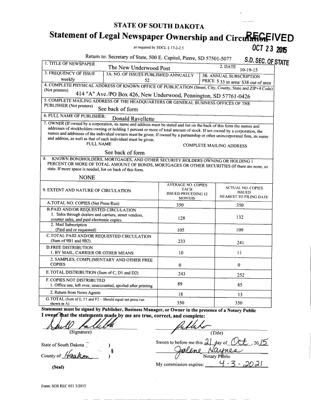 STATE OF SOUTH DAKOTA
Statement of Legal Newspaper Ownership and Circulation
RECEIVED
as required by SDCL § 17-2-2.5
OCT 23 2015
Return to: Secretary of State, 500 E. Capitol, Pierre, SD 57501-5077
S.D. SEC. OF STATE
1. TITLE OF NEWSPAPER
The New Underwood Post
2. DATE
10-19-15
3. FREQUENCY OF ISSUE
weekly
3A. NO. OF ISSUES PUBLISHED ANNUALLY
52
3B. ANNUAL SUBSCRIPTION
PRICE $ 35 in area/ $38 out of area
4. COMPLETE PHYSICAL ADDRESS OF KNOWN OFFICE OF PUBLICATION (Street, City, County, State and ZIP+4 Code)
(Not printers)
414 "A" Ave./PO Box 426, New Underwood, Pennington, SD 57761-0426
5. COMPLETE MAILING ADDRESS OF THE HEADQUARTERS OR GENERAL BUSINESS OFFICES OF THE
PUBLISHER (Not printers)
See back of form
6. FULL NAME OF PUBLISHER:
Donald Ravellette
7. OWNER (If owned by a corporation, its name and address must be stated and list on the back of this form the names and
addresses of stockholders owning or holding 1 percent or more of total amount of stock. If not owned by a corporation, the
names and addresses of the individual owners must be given. If owned by a partnership or other unincorporated firm, its name
and address, as well as that of each individual must be given.
FULL NAME
COMPLETE MAILING ADDRESS
See back of form
8. KNOWN BONDHOLDERS, MORTGAGES, AND OTHER SECURITY HOLDERS OWNING OR HOLDING 1
PERCENT OR MORE OF TOTAL AMOUNT OF BONDS, MORTGAGES OR OTHER SECURITIES (If there are none, so
state. If more space is needed, list on back of this form.
NONE
9. EXTENT AND NATURE OF CIRCULATION
AVERAGE NO. COPIES
EACH
ISSUED PRECEDING 12
MONTHS
ACTUAL NO. COPIES
ISSUED
NEAREST TO FILING DATE
A.TOTAL NO. COPIES (Net Press Run)
350
350
B.PAID AND/OR REQUESTED CIRCULATION
1. Sales through dealers and carriers, street vendors,
counter sales, and paid electronic copies.
128
132
2. Mail Subscription
(Paid and or requested)
105
109
C.TOTAL PAID AND/OR REQUESTED CIRCULATION
(Sum of 9B1 and 9B2)
233
241
D.FREE DISTRIBUTION
1. BY MAIL, CARRIER OR OTHER MEANS
10
11
2. SAMPLES, COMPLIMENTARY AND OTHER FREE
COPIES
0
0
E.TOTAL DISTRIBUTION (Sum of C, D1 and D2)
243
252
F. COPIES NOT DISTRIBUTED
1. Office use, left over, unaccounted, spoiled after printing
89
85
2. Return from News Agents
18
13
G.TOTAL (Sum of E, F1 and F2 - Should equal net press run
shown in A)
350
350
Statement must be signed by Publisher, Business Manager, or Owner in the presence of a Notary Public
I swear that the statements made by me are true, correct, and complete:
Publisher
(Signature)
(Title)
State of South Dakota
Sworn to before me this 21 day of Oct. 2015
County of Haakon
Notary Public
(Seal)
My commission expires: 4-3-2021
Form: SOS REC 051 3/2015